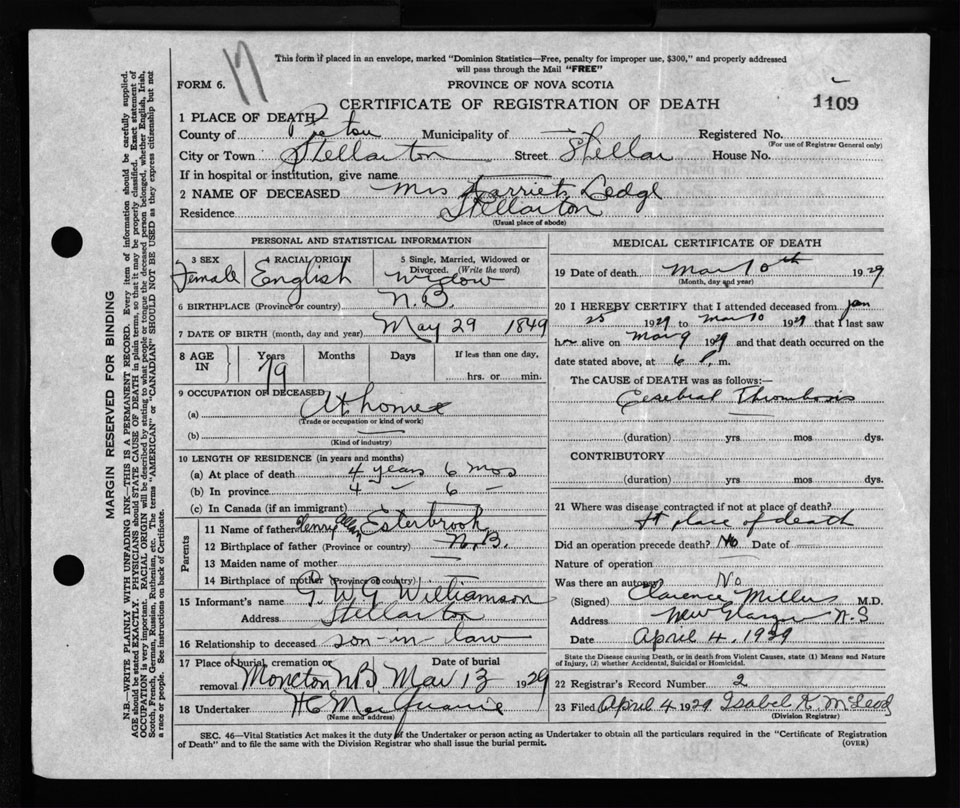 This form if placed in an envelope, marked "Dominion Statistics—Free, penalty for improper use, $300," and properly addressed
will pass through the Mail "FREE"
FORM 6.
17
PROVINCE OF NOVA SCOTIA
1109
CERTIFICATE OF REGISTRATION OF DEATH
1 PLACE OF DEATH
County of Pictou Municipality of — Registered No.
(For use of Registrar General only)
City or Town Stellarton Street Stellar House No.
If in hospital or institution, give name
2 NAME OF DECEASED Mrs Harriet Dodge
Residence Stellarton
(Usual place of abode)
PERSONAL AND STATISTICAL INFORMATION
3 SEX 4 RACIAL ORIGIN 5 Single, Married, Widowed or
Divorced. (Write the word)
Female English Widow
6 BIRTHPLACE (Province or country) N.B.
7 DATE OF BIRTH (month, day and year) May 29 1849
8 AGE IN Years Months Days If less than one day,
79 hrs. or min.
9 OCCUPATION OF DECEASED
(a) At home
(Trade or occupation or kind of work)
(b) —
(Kind of industry)
10 LENGTH OF RESIDENCE (in years and months)
(a) At place of death 4 years 6 mos
(b) In province 4 — 6 —
(c) In Canada (if an immigrant)
Parents
11 Name of father Henry Esterbrook
12 Birthplace of father (Province or country) N.B.
13 Maiden name of mother —
14 Birthplace of mother (Province or country)
15 Informant's name G. W. G. Williamson
Address Stellarton
16 Relationship to deceased son-in law
17 Place of burial, cremation or Date of burial
removal Moncton N.B. Mar 13 1929
18 Undertaker H C MacQuarrie
(Name and address)
MEDICAL CERTIFICATE OF DEATH
19 Date of death Mar 10th 1929
(Month, day and year)
20 I HEREBY CERTIFY that I attended deceased from Jan
25 1929 to Mar 10 1929 that I last saw
her alive on Mar 9 1929 and that death occurred on the
date stated above, at 6 P. m.
The CAUSE of DEATH was as follows:—
Cerebral Thrombosis
(duration) yrs mos dys.
CONTRIBUTORY
(duration) yrs mos dys.
21 Where was disease contracted if not at place of death?
At place of death
Did an operation precede death? No Date of
Nature of operation
Was there an autopsy? No
(Signed) Clarence Miller M.D.
Address New Glasgow N.S
Date April 4. 1929
State the Disease causing Death, or in death from Violent Causes, state (1) Means and Nature
of Injury, (2) whether Accidental, Suicidal or Homicidal.
22 Registrar's Record Number 2
23 Filed April 4 1929 Isabel K. McLeod
(Division Registrar)
SEC. 46—Vital Statistics Act makes it the duty of the Undertaker or person acting as Undertaker to obtain all the particulars required in the "Certificate of Registration
of Death" and to file the same with the Division Registrar who shall issue the burial permit. (OVER)
MARGIN RESERVED FOR BINDING
N.B.—WRITE PLAINLY WITH UNFADING INK—THIS IS A PERMANENT RECORD. Every item of information should be carefully supplied.
AGE should be stated EXACTLY. PHYSICIANS should STATE CAUSE OF DEATH in plain terms, so that it may be properly classified. Exact statement of
OCCUPATION is very important. RACIAL ORIGIN will be described by stating to what people or tongue the deceased person belonged, whether English, Irish,
Scotch, French, German, Russian, Ruthenian, etc. The terms "AMERICAN" or "CANADIAN" SHOULD NOT BE USED as they express citizenship but not
a race or people. See instructions on back of Certificate.